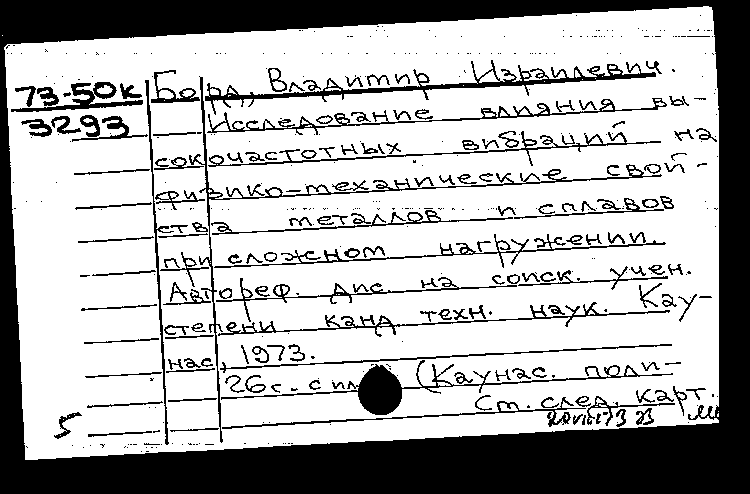 73-50к
3293
Борд, Владимир Израилевич.
Исследование влияния вы-
сокочастотных вибраций на
физико-механические свой-
ства металлов и сплавов
при сложном нагружении.
Автореф. дис. на соиск. учен.
степени канд техн. наук. Кау-
нас, 1973.
26 с. с ил (Каунас. поли-
Ст. след. карт.
5